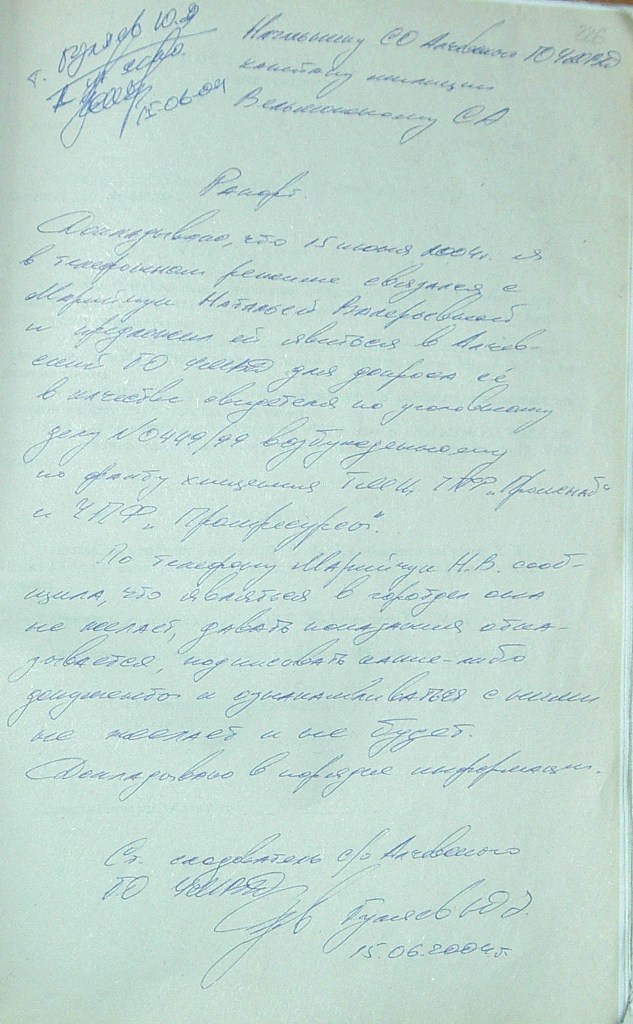 226
г. Гуляев Ю.Д
15-06-04
Начальнику СО Алчевского ГО УМВД
капитану милиции
Вельможному СА
Рапорт.
Докладываю, что 15 июня 2004г. я
в телефонном режиме связался с
Марийчук Натальей Валерьевной
и предложил ей явиться в Алчев-
ский ГО УМВД для допроса её
в качестве свидетеля по уголовному
делу N0449/99 возбужденному
по факту хищения ТМЦ ЧПФ „Промснаб"
и ЧПФ „Промресурсы".
По телефону Марийчук Н.В. сооб-
щила, что являться в горотдел она
не желает, давать показания отка-
зывается, подписовать какие-либо
документы и ознакамливаться с ними
не желает и не будет.
Докладываю в порядке информации.
Ст. следователь с/о Алчевского
ГО УМВД
Гуляев Ю Д.
15.06.2004г